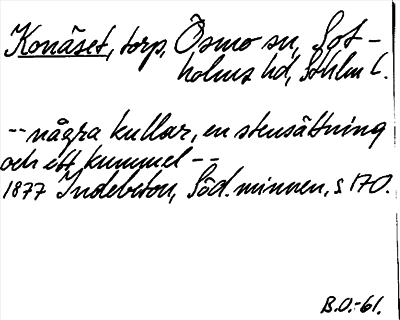 Konäset, torp, Ösmo sn, Sot-
holms hd, Sthlm l.
-- några kullar, en stensättning
och ett kummel --
1877 Indebetou, Söd. minnen, s 170.
B.O.-61.